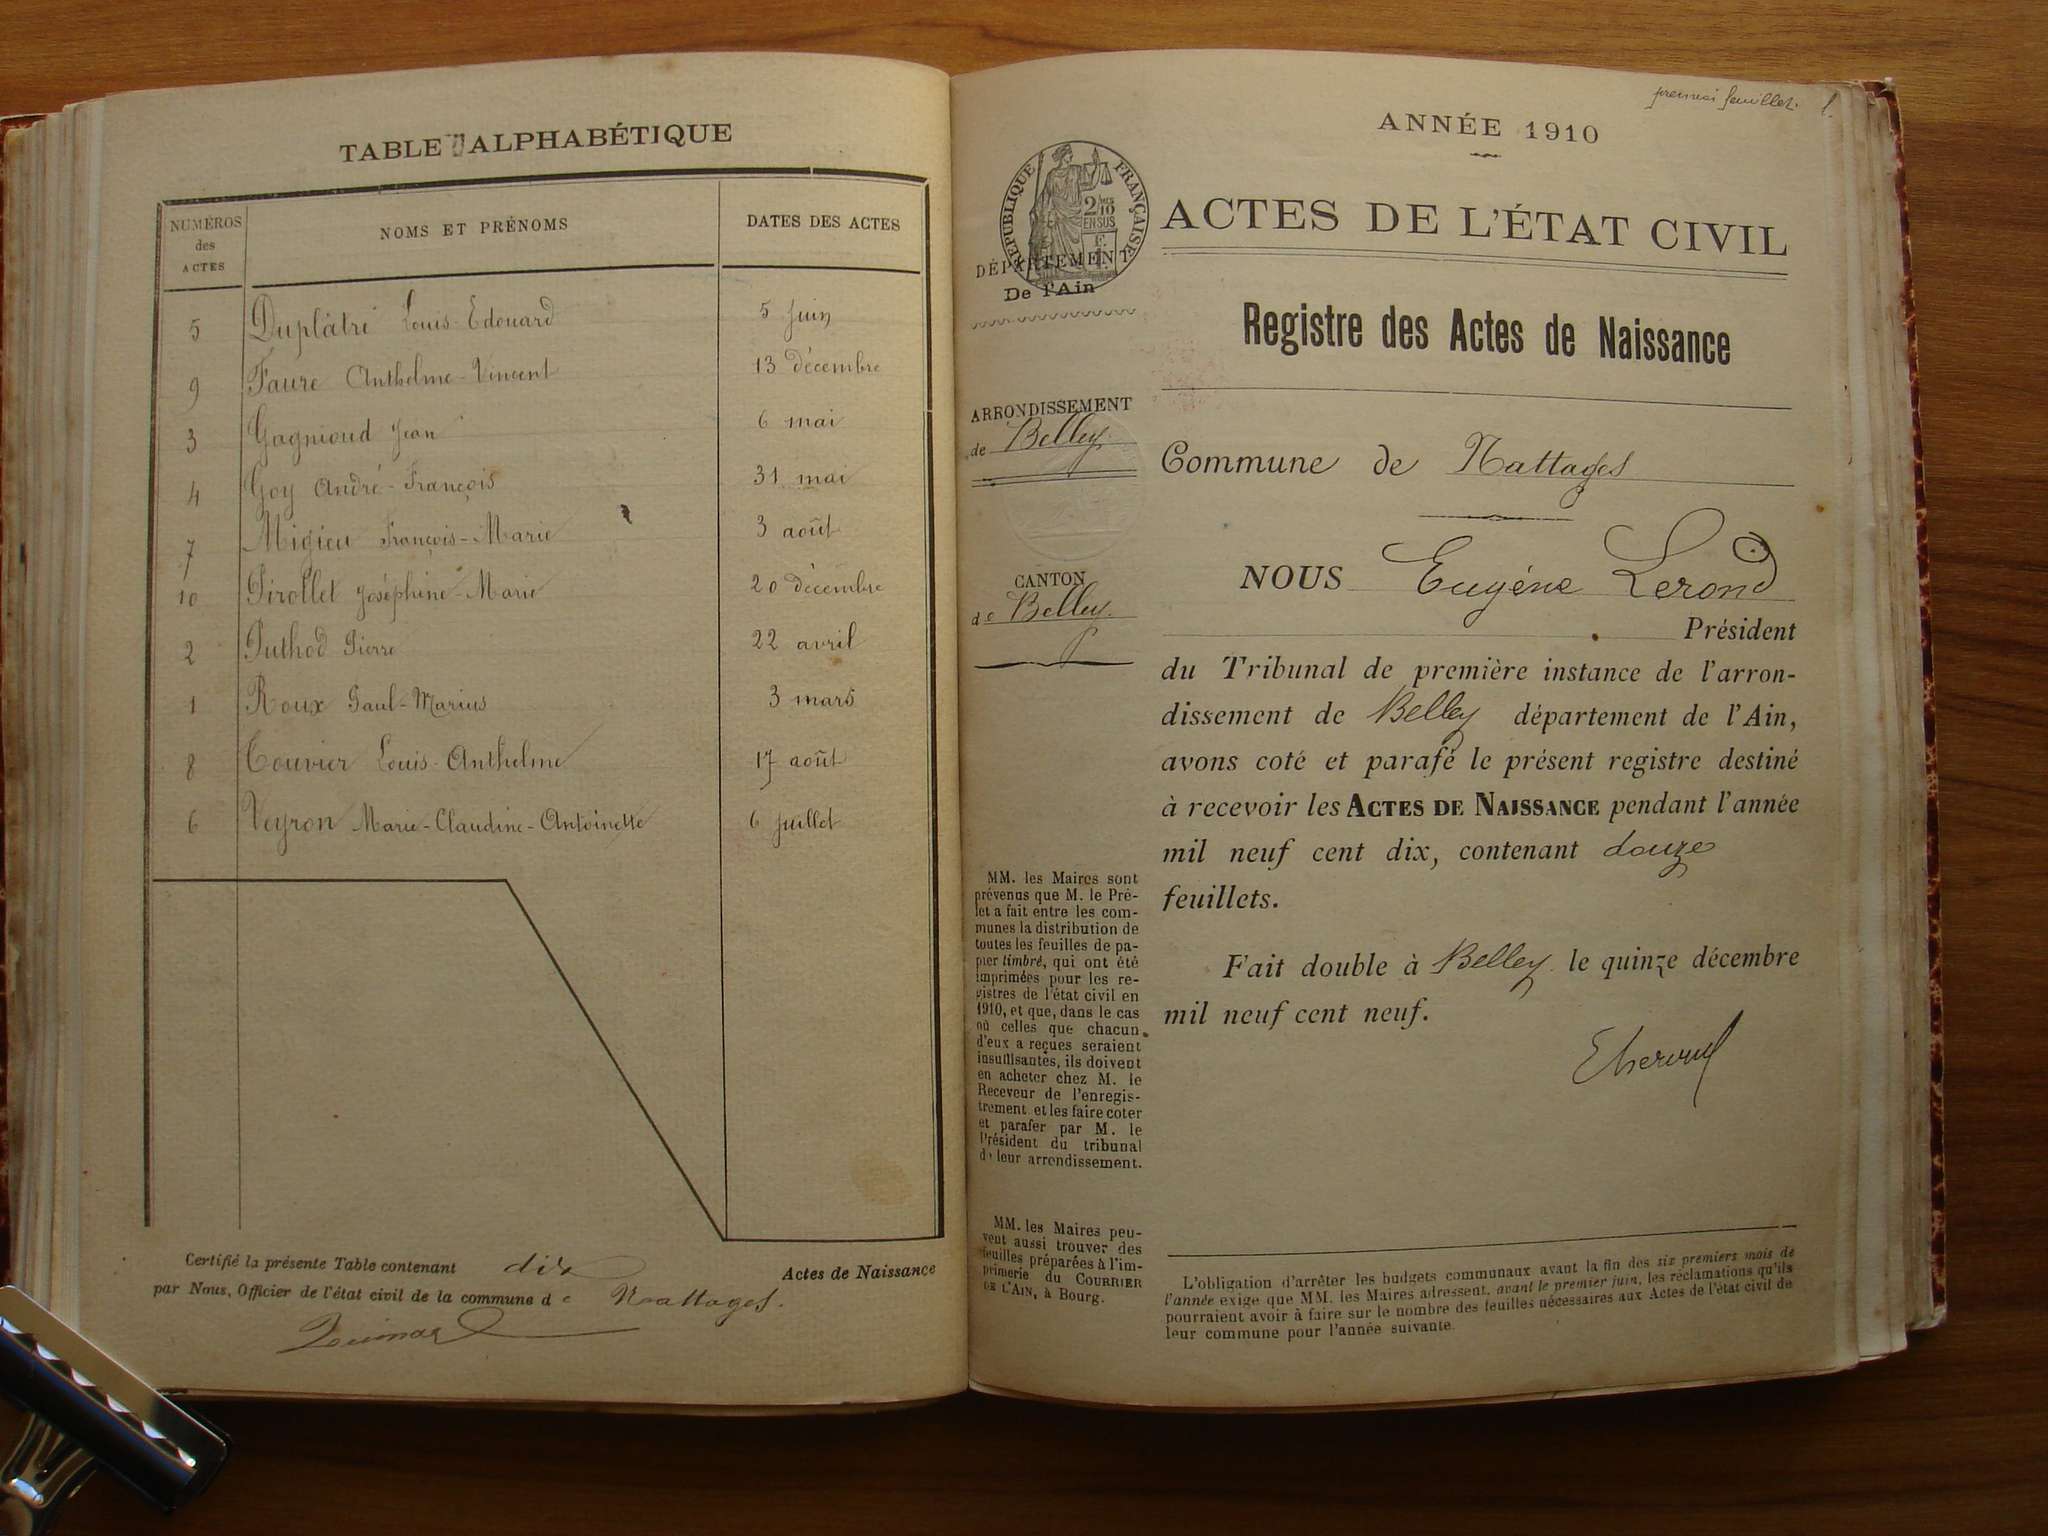 TABLE ALPHABÉTIQUE
NUMÉROS des ACTES NOMS ET PRÉNOMS DATES DES ACTES
5 Duplâtre Louis-Edouard 5 juin
9 Faure Anthelme-Vincent 13 décembre
3 Gagnioud Jean 6 mai
4 Goy André-François 31 mai
7 Migieu François-Marie 3 août
10 Pirollet Joséphine-Marie 20 décembre
2 Puthod Pierre 22 avril
1 Roux Paul-Marius 3 mars
8 Touvier Louis-Anthelme 17 août
6 Veyron Marie-Claudine-Antoinette 6 juillet
Certifié la présente Table contenant dix Actes de Naissance
par Nous, Officier de l'état civil de la commune de Nattages.
premier feuillet. 1.
ANNÉE 1910
RÉPUBLIQUE FRANÇAISE
2/10 EN SUS
ACTES DE L'ÉTAT CIVIL
DÉPARTEMENT
De l'Ain
Registre des Actes de Naissance
ARRONDISSEMENT
de Belley
Commune de Nattages
CANTON
de Belley
NOUS Eugène Lerond
Président
du Tribunal de première instance de l'arron-
dissement de Belley département de l'Ain,
avons coté et parafé le présent registre destiné
à recevoir les ACTES DE NAISSANCE pendant l'année
mil neuf cent dix, contenant douze
feuillets.
Fait double à Belley le quinze décembre
mil neuf cent neuf.
MM. les Maires sont
prévenus que M. le Pré-
fet a fait entre les com-
munes la distribution de
toutes les feuilles de pa-
pier timbré, qui ont été
imprimées pour les re-
gistres de l'état civil en
1910, et que, dans le cas
où celles que chacun
d'eux a reçues seraient
insuffisantes, ils doivent
en acheter chez M. le
Receveur de l'enregis-
trement et les faire coter
et parafer par M. le
Président du tribunal
de leur arrondissement.
MM. les Maires peu-
vent aussi trouver des
feuilles préparées à l'im-
primerie du COURRIER
DE L'AIN, à Bourg.
L'obligation d'arrêter les budgets communaux avant la fin des six premiers mois de
l'année exige que MM. les Maires adressent, avant le premier juin, les réclamations qu'ils
pourraient avoir à faire sur le nombre des feuilles nécessaires aux Actes de l'état civil de
leur commune pour l'année suivante.